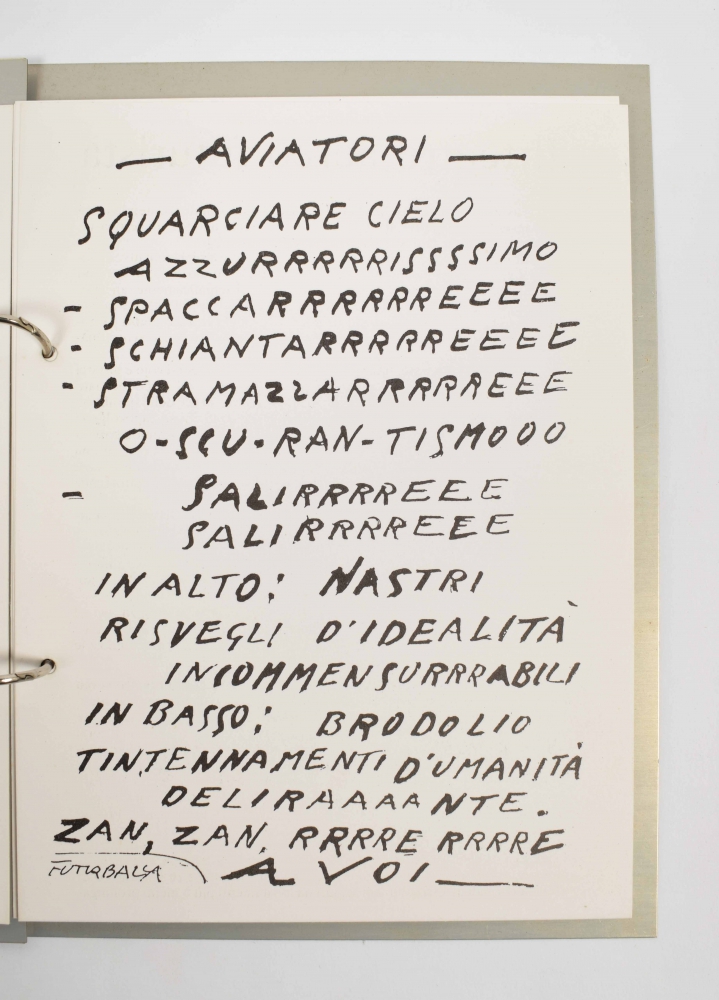 — AVIATORI —
SQUARCIARE CIELO
AZZURRRRRRISSSSIMO
- SPACCARRRRRRREEEE
- SCHIANTARRRRRREEEE
- STRAMAZZARRRRRREEE
O-SCU-RAN-TISMOOO
- SALIRRRRREEE
SALIRRRRREEE
IN ALTO: NASTRI
RISVEGLI D'IDEALITÀ
INCOMMENSURRRABILI
IN BASSO: BRODOLIO
TINTENNAMENTI D'UMANITÀ
DELIRAAAANTE.
ZAN, ZAN, RRRRE RRRRE
A VOI —
FUTURBALLA